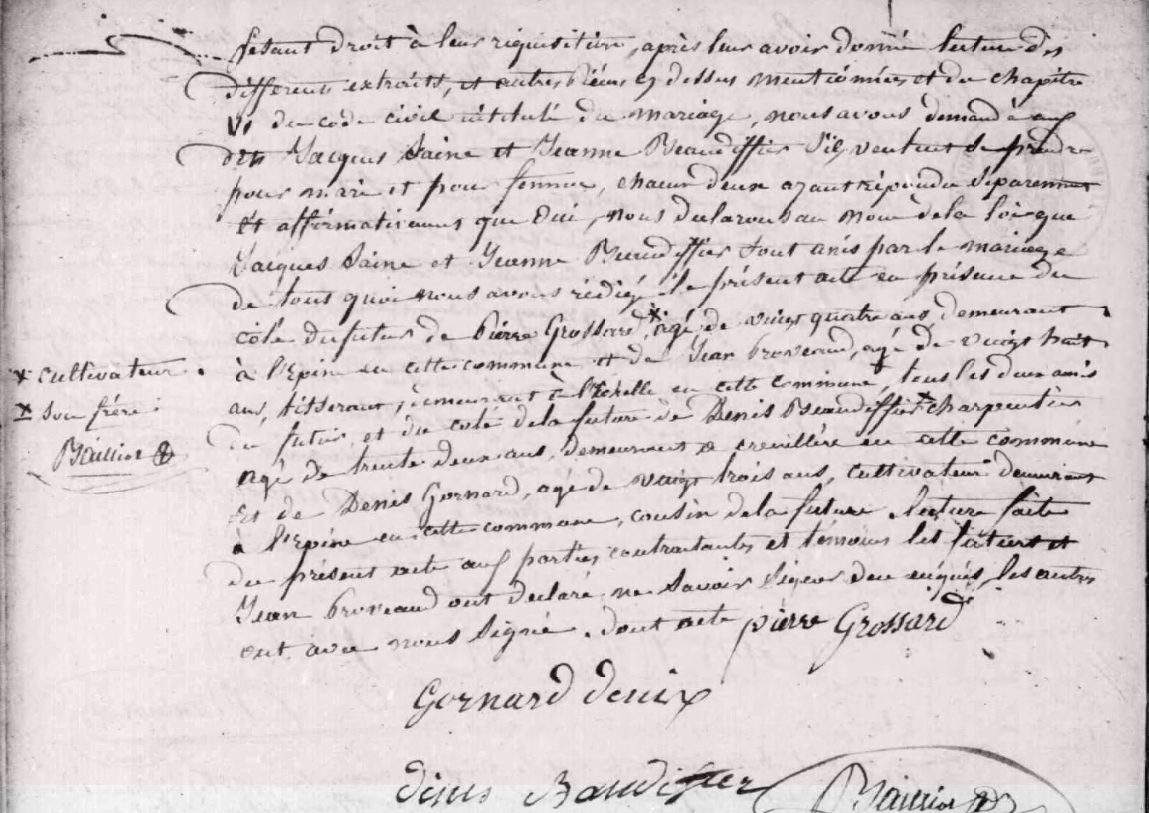 fesant droit à leur réquisitiire, après leur avoir donné lecture des
differents extraits, et autres piéces cy dessus mentionnées et du chapitre
VI du code civil intitulé du mariage, nous avons demandé aux
dits Jacques Saine et Jeanne Beaudiffier s'ils veulent se prendre
pour mari et pour femme, chacun deux ayant répondu séparement
et affirmativement que oui, nous declarons au nom de la loi que
Jacques Saine et Jeanne Beaudiffier sont unis par le mariage
de tous quoi nous avons rédigé le présent acte en présence du
côté du futur de Pierre Grossard × agé de vingt quatre ans demeurant
à l'Epine en cette commune et de Jean Proveaud, agé de vingt huit
× cultivateur.
ans, tisserant, demeurant à l'Echelle en cette commune, tous les deux amis
× son frère
du futur, et du coté de la future de Denis Beaudiffier × charpentier
agé de trente deux ans, demeurant a crevillère en cette commune
et de Denis Gornard, agé de vingt trois ans, cultivateur demeurant
à l'Epine en cette commune, cousin de la future. lecture faite
du présent acte aux parties contractantes et témoins les
Jean Proveaud ont declaré ne savoir signer de ce enquis, les autres
ont avec nous signé. dont acte pierre Grossard
Gornard denix
denis Baudifier